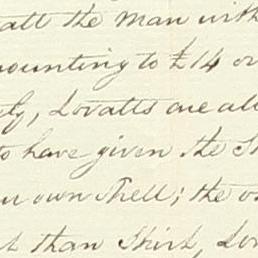 att the Man with
mounting to £14 or
ly, Lovatts are al
to have given the S
ur own Shell; the o
t than Shirt, Lov